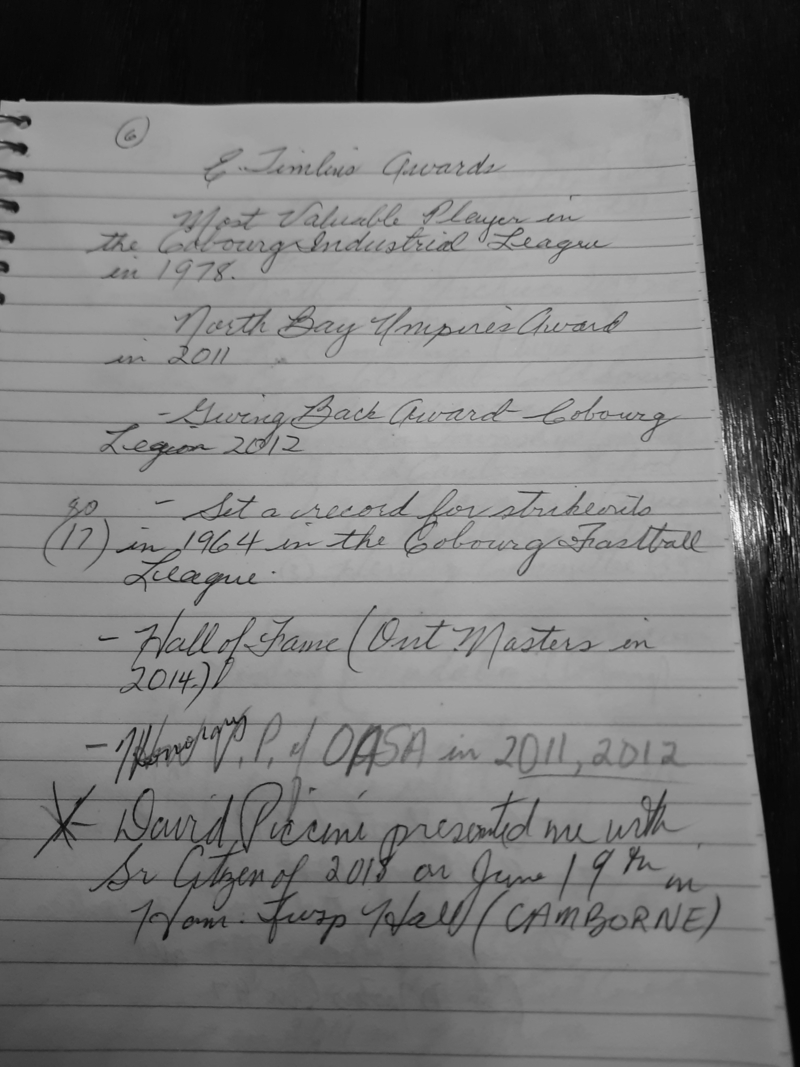 6
E. Timlin's Awards
Most Valuable Player in
the Cobourg Industrial League
in 1978.
North Bay Umpire's Award
in 2011
- Giving Back Award - Cobourg
Legion 2012
- Set a record for strikeouts
(17) in 1964 in the Cobourg Fastball
League.
- Hall of Fame (Ont Masters in
2014.)
- Honorary V. P. of OASA in 2011, 2012
X - David Piccini presented me with
Sr Citizen of 2018 on June 19th in
Ham. Twsp Hall (CAMBORNE)